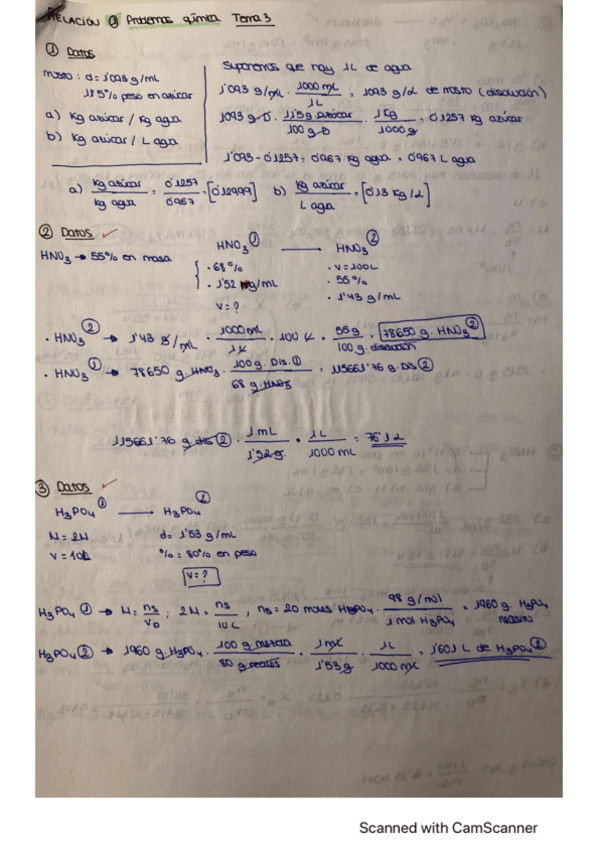 RELACIÓN Problemas química Tema 3
① Datos
mosto: d = 1'093 g/mL
11'5% peso en azúcar
a) Kg azúcar / Kg agua
b) Kg azúcar / L agua
Suponemos que hay 1L de agua
1'093 g/mL · 1000 mL / 1L = 1093 g/L de mosto (disolución)
1093 g D · 11'5g azúcar / 100 g D · 1 Kg / 1000 g = 0'1257 Kg azúcar
1'093 - 0'1257 = 0'967 Kg agua = 0'967 L agua
a) Kg azúcar / Kg agua = 0'1257 / 0'967 = [0'12999] b) Kg azúcar / L agua = [0'13 Kg/L]
② Datos ✓
HNO3 → 55% en masa
HNO3 ① → HNO3 ②
· 68% · V = 100L
· 1'52 g/mL · 55%
V = ? · 1'43 g/mL
· HNO3 ② → 1'43 g/mL · 1000 mL / 1L · 100 L · 55g / 100 g. disolución = 78650 g. HNO3 ②
· HNO3 ① → 78650 g. HNO3 · 100 g. Dis. ① / 68 g. HNO3 = 115661'76 g. Dis ②
115661'76 g. dis ② · 1 mL / 1'52 g. · 1L / 1000 mL = 76'1 L
③ Datos ✓
H3PO4 ① → H3PO4 ②
N = 2N d = 1'53 g/mL
V = 10L % = 80% en peso
V = ?
H3PO4 ① → N = ns / VD ; 2N = ns / 10L , ns = 20 moles H3PO4 · 98 g/mol / 1 mol H3PO4 = 1960 g. H3PO4
H3PO4 ② → 1960 g. H3PO4 · 100 g / 80 g · 1 mL / 1'53 g · 1L / 1000 mL = 1'601 L de H3PO4 ②
Scanned with CamScanner